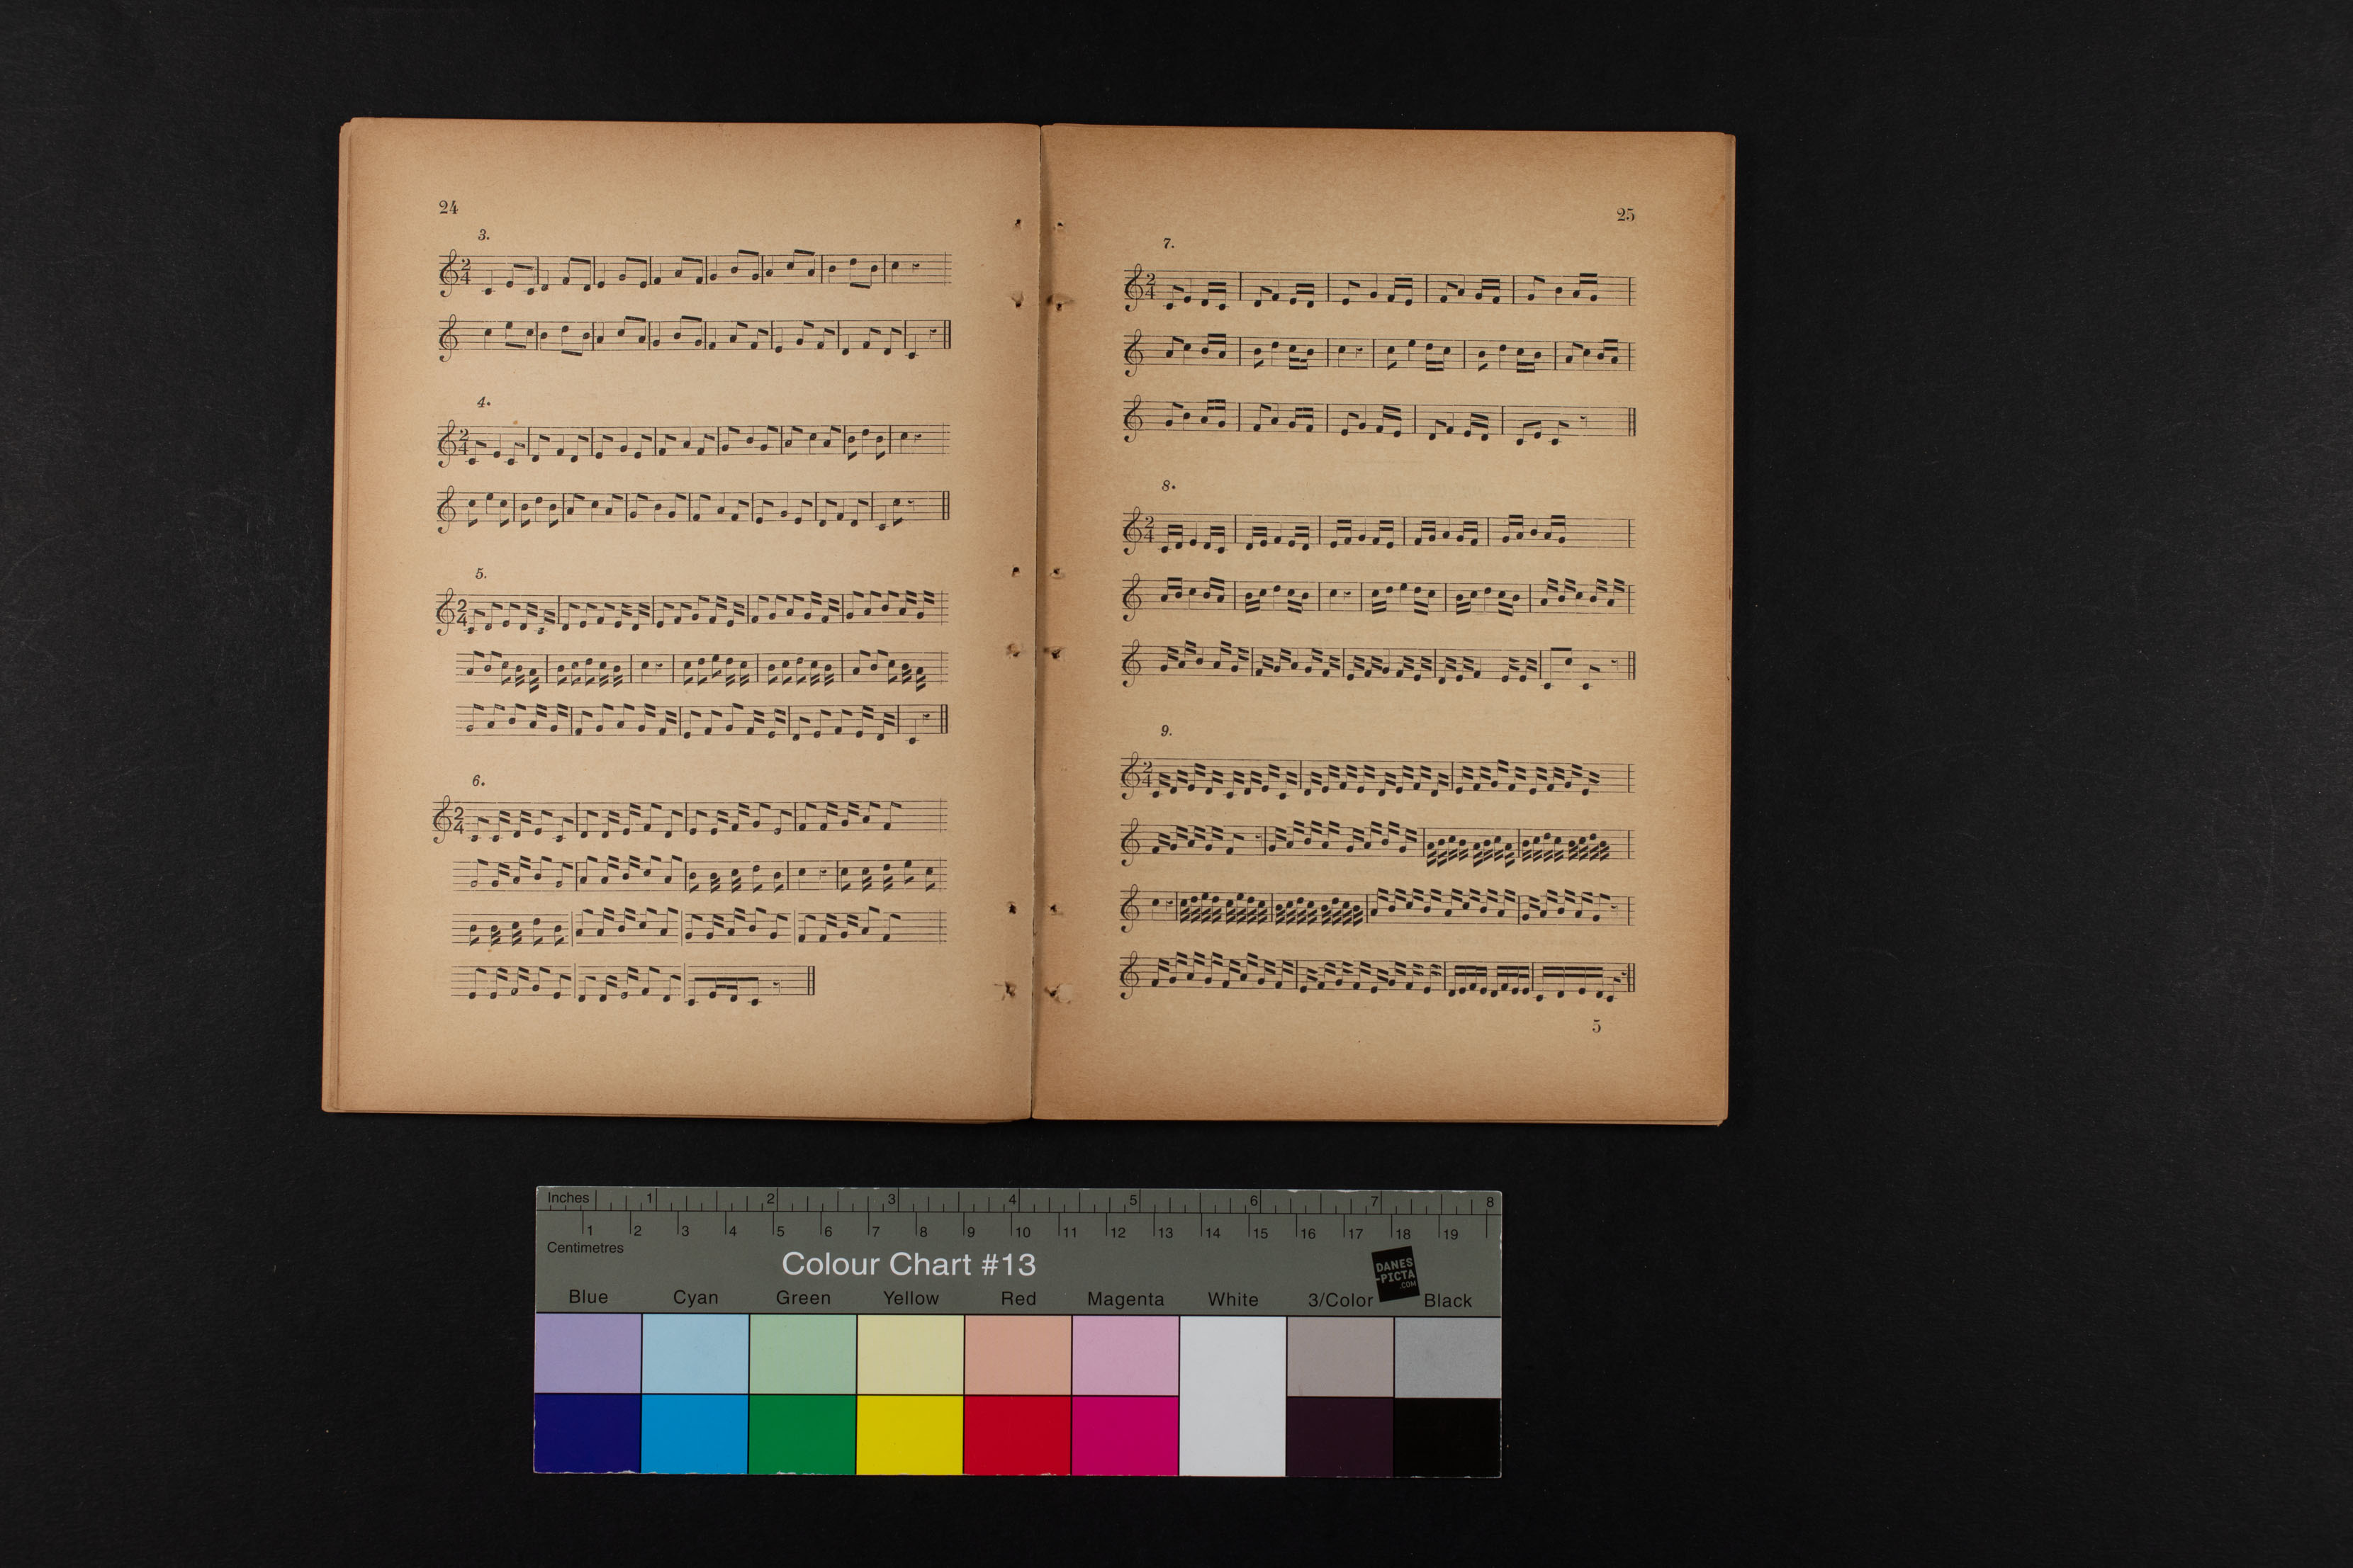 24
3.
2
4
4.
2
4
5.
2
4
6.
2
4
25
7.
2
4
8.
2
4
9.
2
4
5
Inches 1 2 3 4 5 6 7 8
1 2 3 4 5 6 7 8 9 10 11 12 13 14 15 16 17 18 19
Centimetres
Colour Chart #13
DANES
-PICTA
.COM
Blue Cyan Green Yellow Red Magenta White 3/Color Black